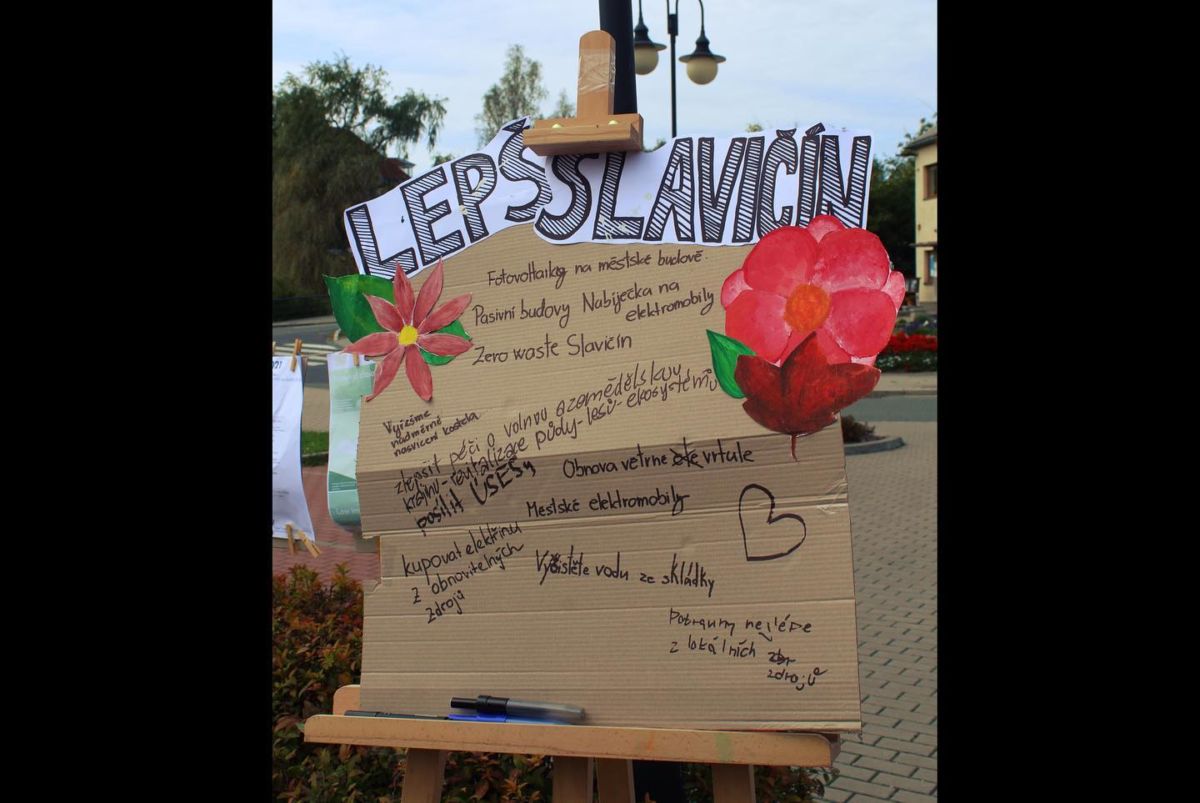 LEPŠ SLAVIČÍN
Fotovoltaiky na městské budově
Pasivní budovy
Nabíječka na
elektromobily
Zero waste Slavičín
Vyřešme
nadměrné
nasvícení kostela
zlepšit péči o volnou a zemědělskou
krajinu - revitalizace půdy - lesů - ekosystémů
posílit ÚSESy
Obnova větrne vrtule
Mestské elektromobily
kupovat elektřinu
z obnovitelných
zdrojů
Vyčistěte vodu ze skládky
Potraviny nejlépe
z lokálních
zdrojů
021